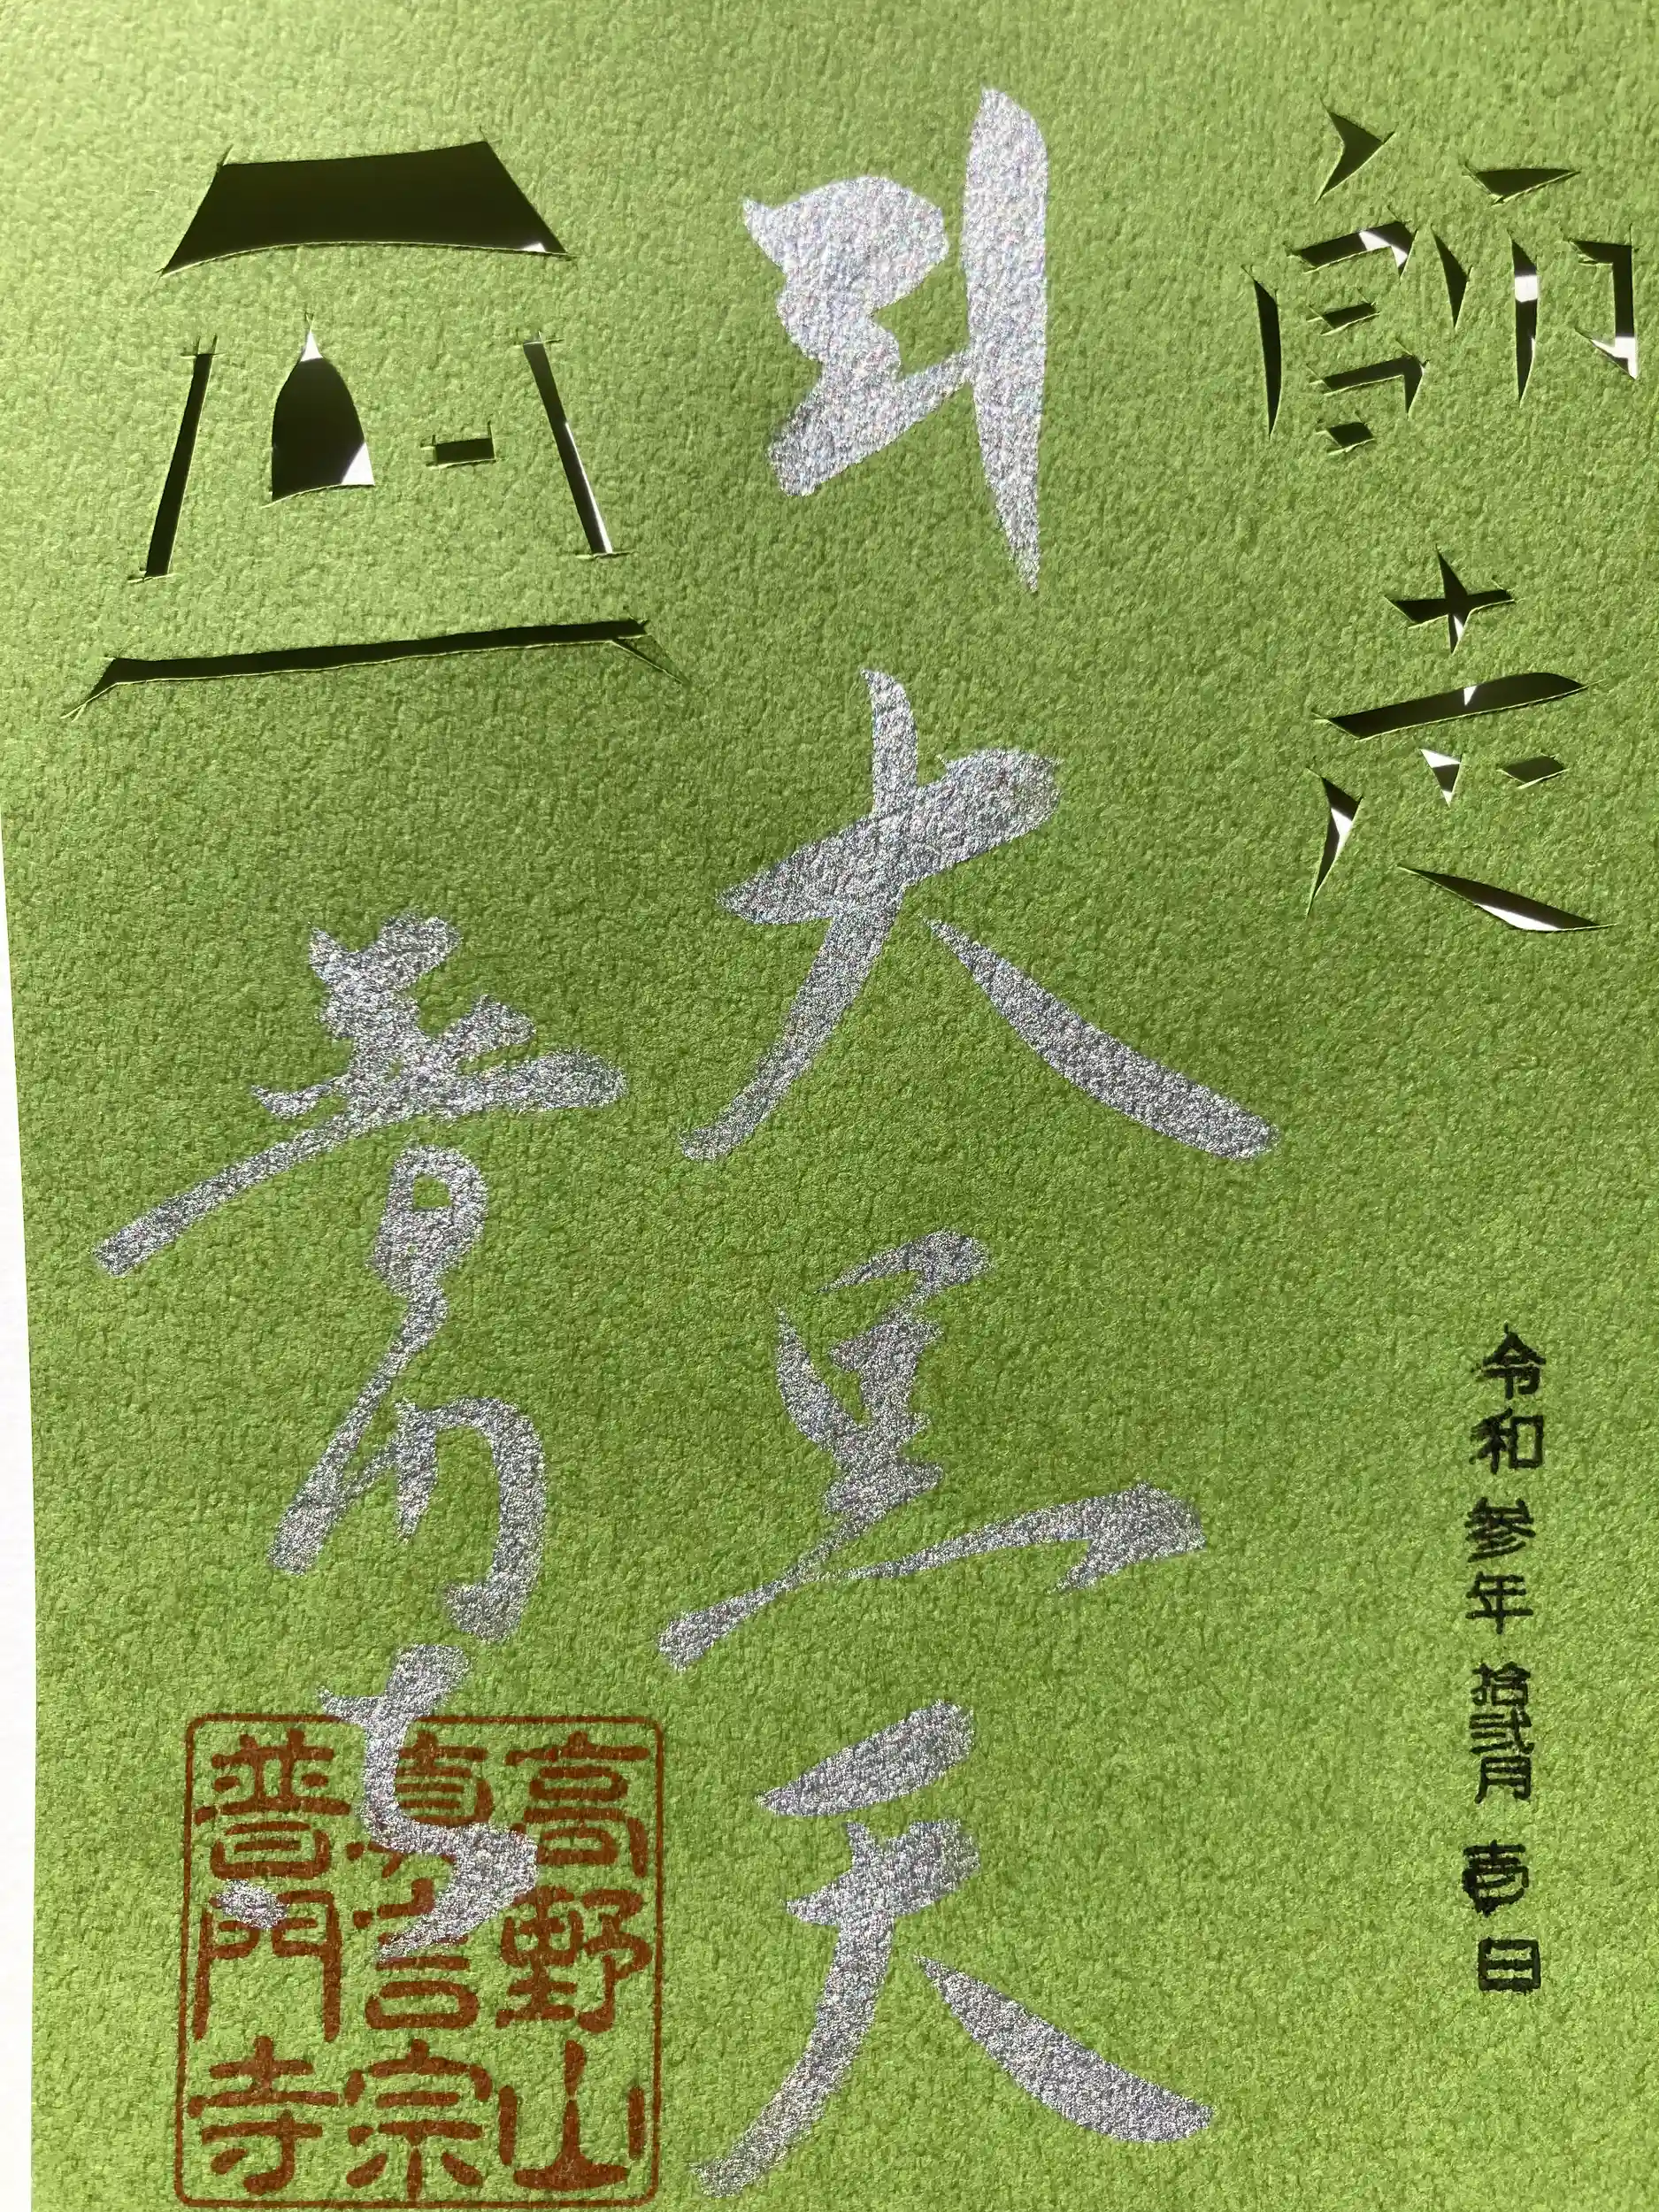 師走
令和参年拾弐月壱日
大黒天
普門寺
高野山
真言宗
普門寺